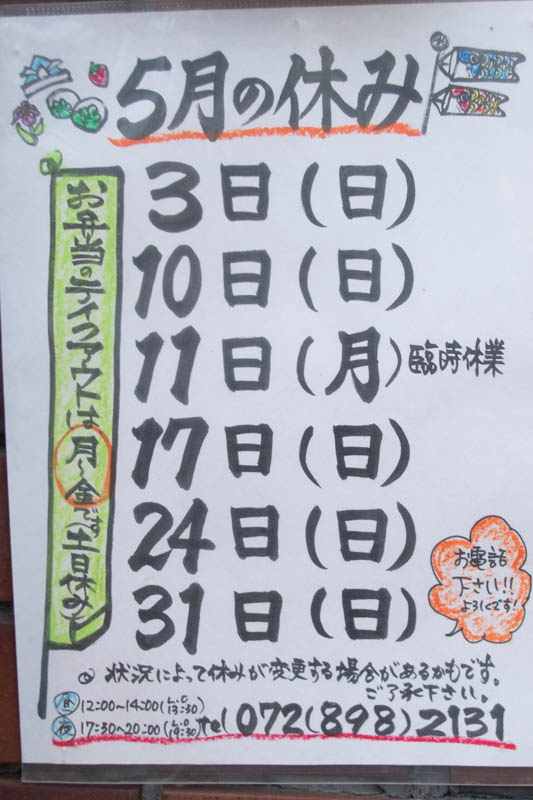 5月の休み
お弁当のテイクアウトは月~金です(土日休み)
3日(日)
10日(日)
11日(月)臨時休業
17日(日)
24日(日)
31日(日)
お電話
下さい!!
よろしくです!
◎状況によって休みが変更する場合があるかもです。
ご了承下さい。
昼 12:00~14:00(L.O 13:30)
夜 17:30~20:00(L.O 19:30) tel 072(898)2131